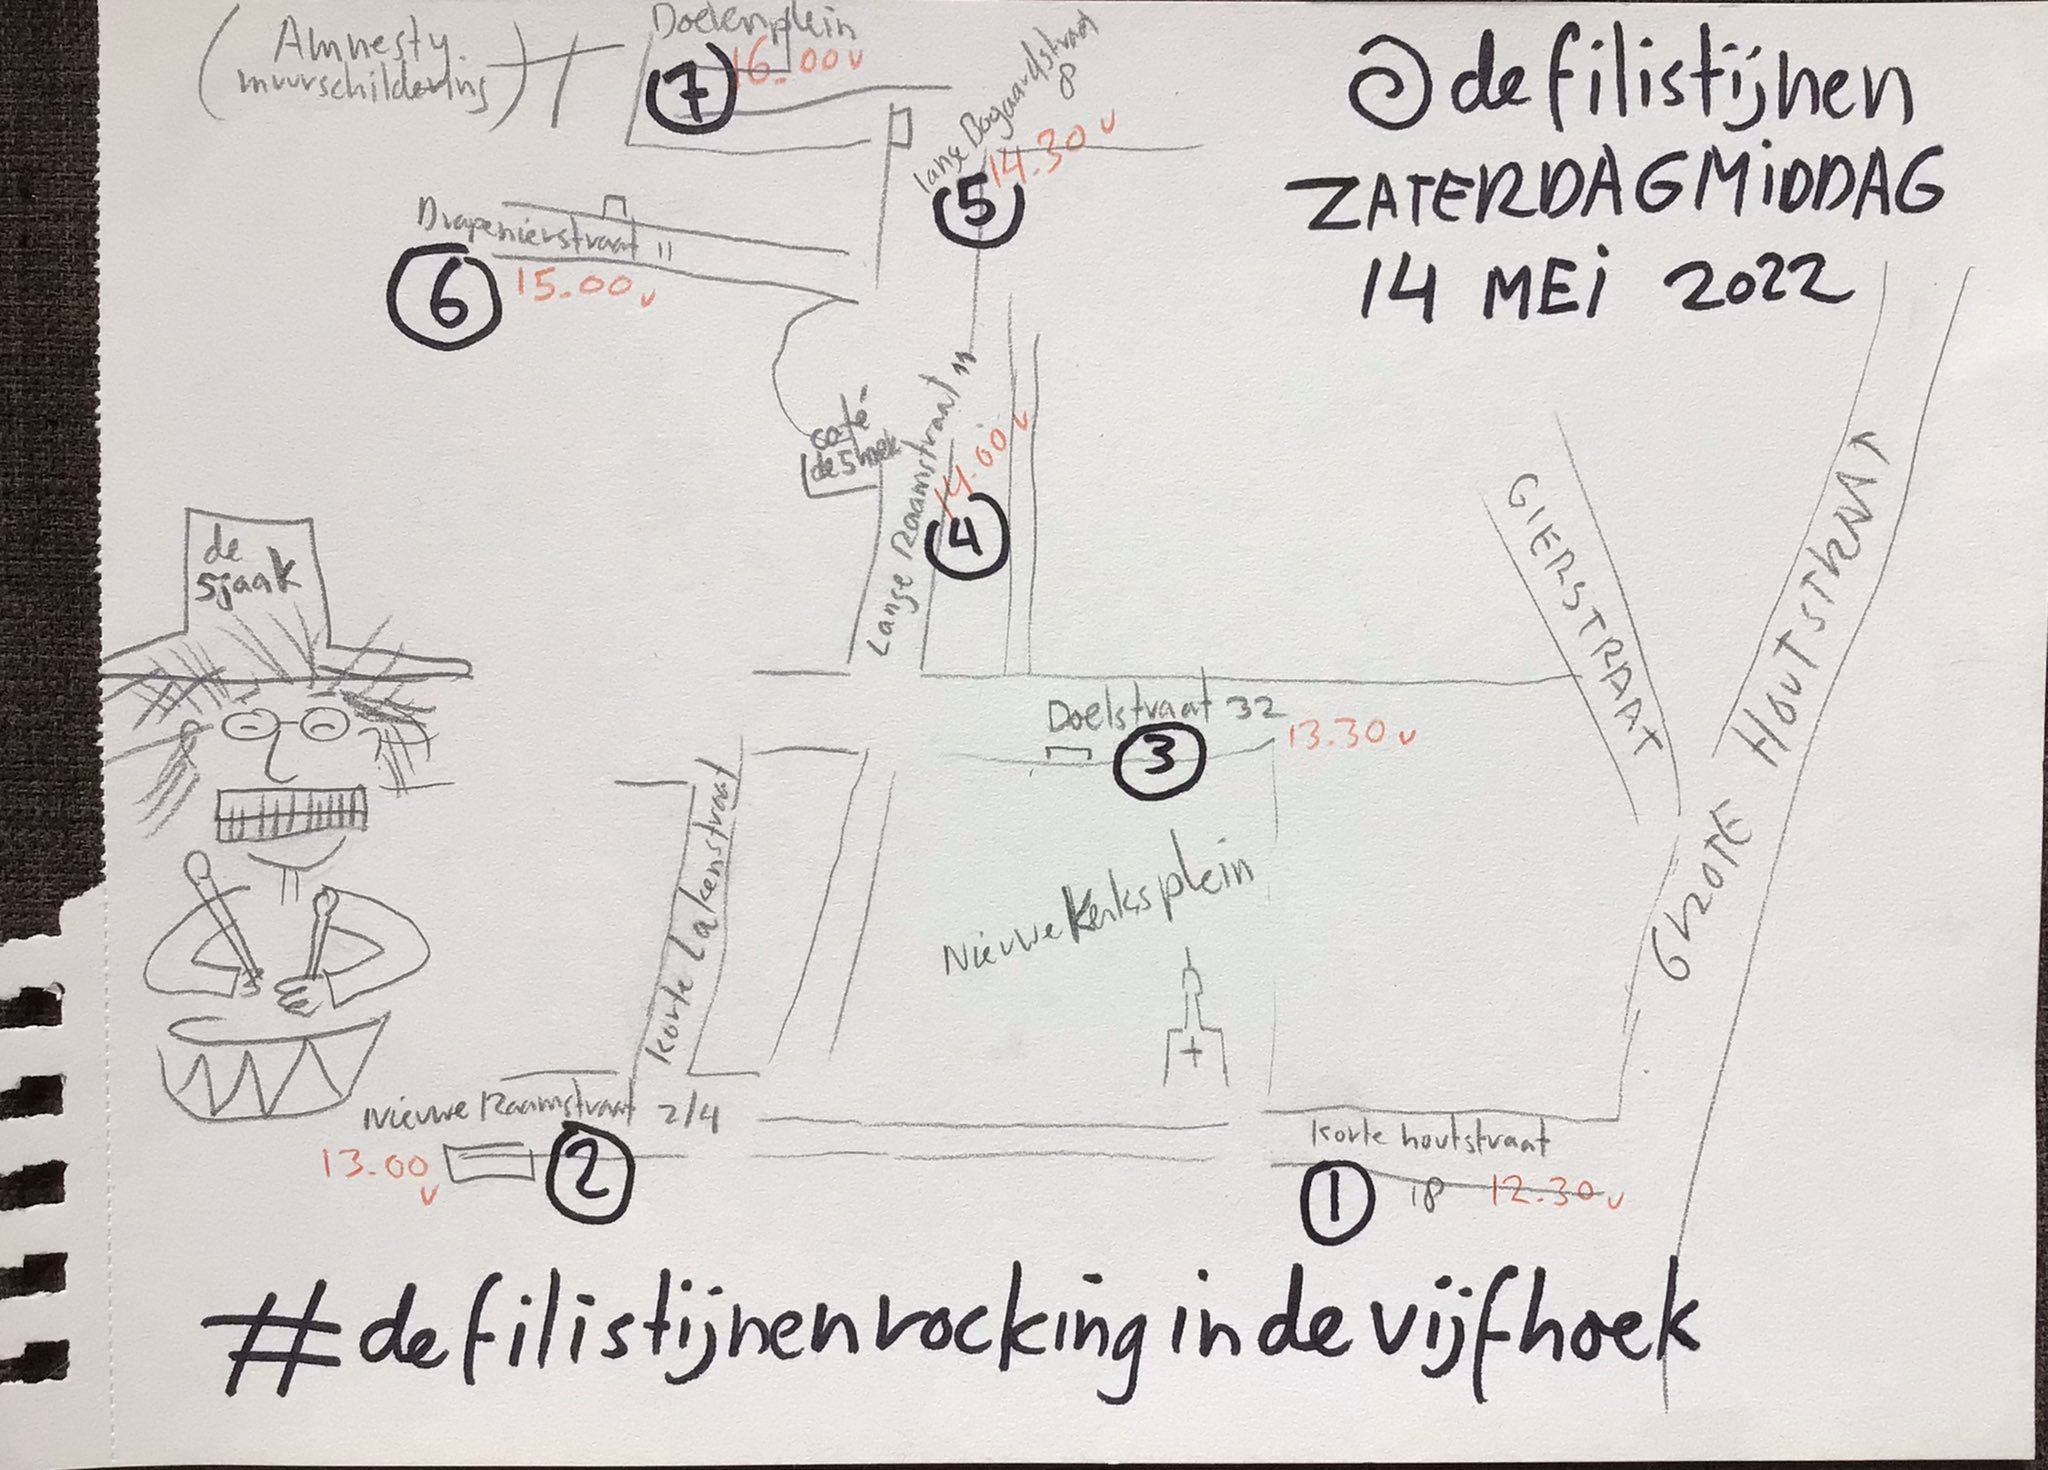 @defilistijnen
ZATERDAGMIDDAG
14 MEI 2022
(Amnesty
muurschildering)
Doelenplein
7
16.00 u
lange Bogaardstraat
8
14.30 u
5
Drapenierstraat 11
6
15.00 u
café-
de 5hoek
Lange Raamstraat 11
14.00 u
4
GIERSTRAAT
GROTE HOUTSTRAAT
de
Sjaak
Doelstraat 32
13.30 u
3
korte Lakenstraat
Nieuwe Kerksplein
Nieuwe Raamstraat 2/4
13.00
u
2
korte houtstraat
1
18
12.30 u
#defilistijnenrockingindevijfhoek